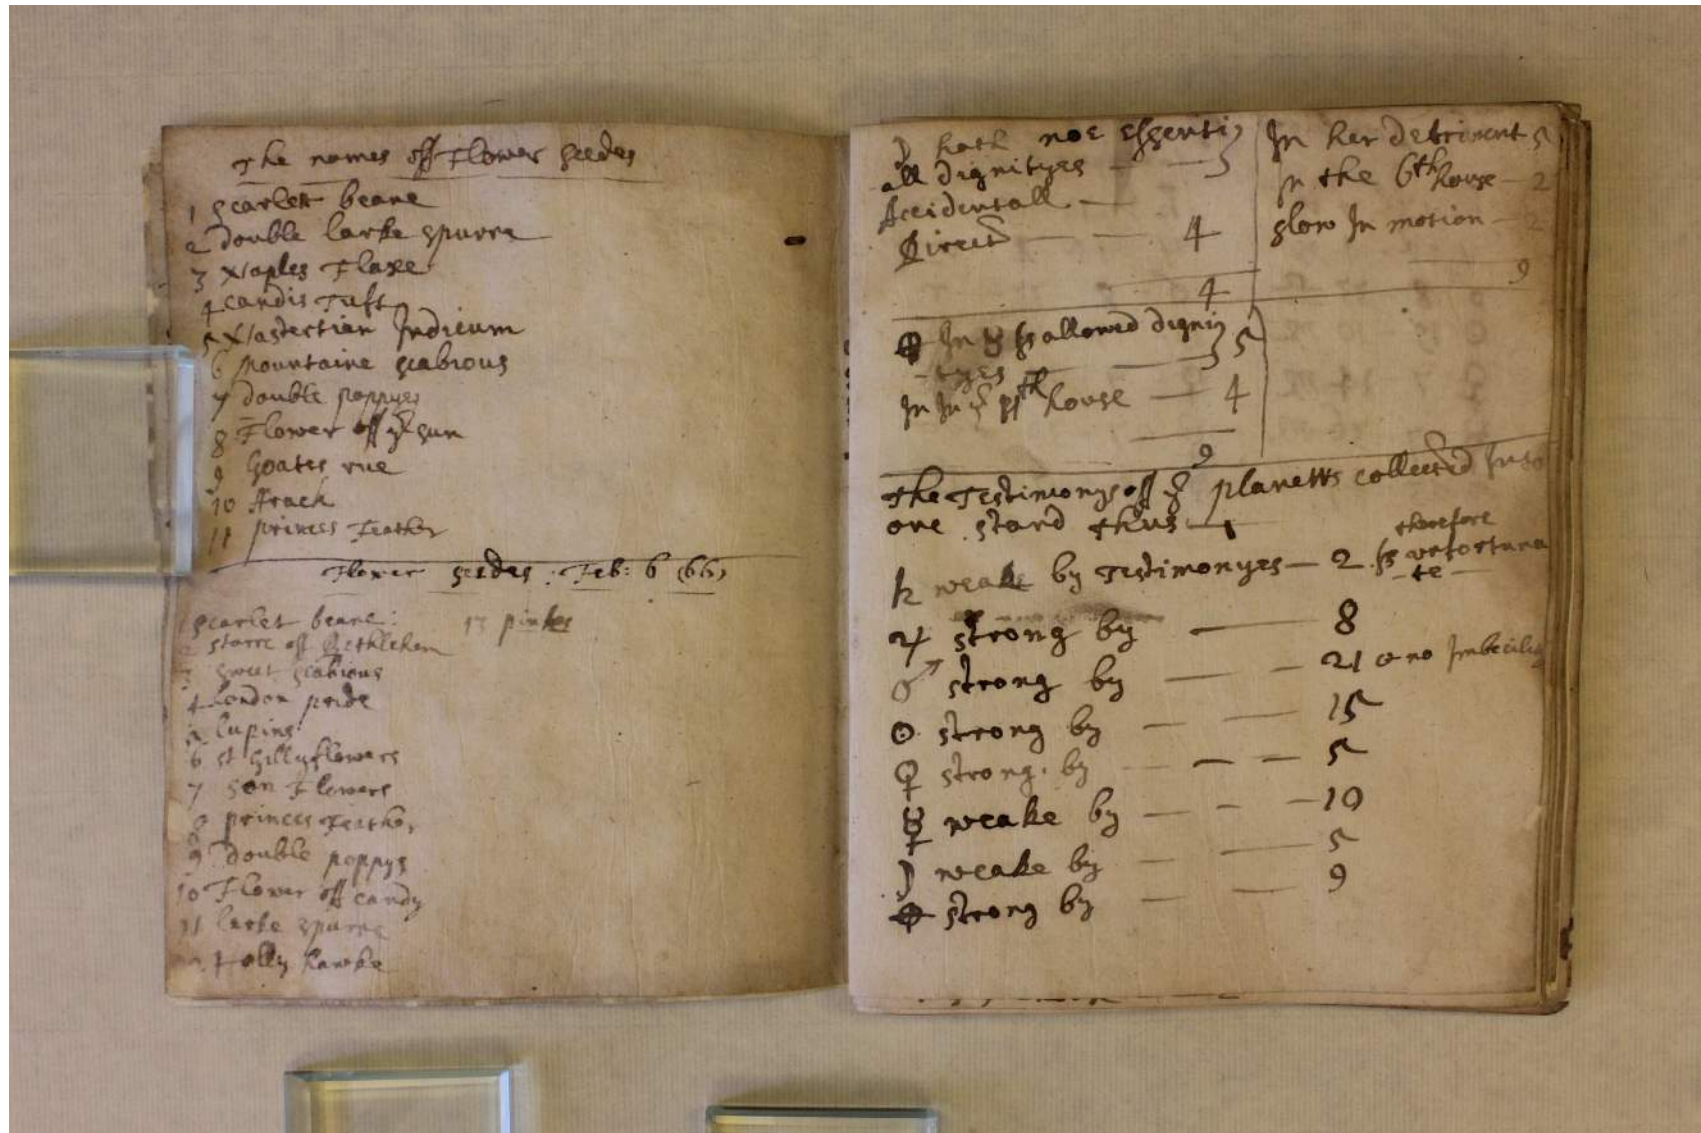 The names off Flower seedes
1 scarlett beane
2 double larke spurra
3 Naples Flaxe
4 candis Tuft
5 Nastertian Indicum
6 Mountaine scabious
7 double poppyes
8 Flower off yͤ sun
9 Goates rue
10 Arach
11 princes Feather
Flower seedes : Feb: 6 (66)
1 scarlet beane :
2 starre off Bethlehem
3 sweet scabious
4 London pride
5 lupins
6 st Gillyflowers
7 son Flowers
8 princes Feather
9 double poppys
10 Flower off candy
11 larke spurre
holly
13 pinkes
☽ hath noe Essenti
all dignityes — — 5
Accidentall —
Direct — — 4
4
In her detriment 5
In the 6th house — 2
slow In motion — 2
9
⊕ In ☿ Is allowed digni
-tyes — — 5
In yͤ th house — 4
9
The Testimonys off yͤ planetts collected Into
one stand thus —
♄ weake by Testimonyes — 2 Is therefore unfortuna
-te —
♃ strong by — 8
♂ strong by — — 21 & no Imbecility
☉ strong by — — 15
♀ strong by — — — 5
☿ weake by — - — 10
☽ weake by — — 5
⊕ strong by — — 9